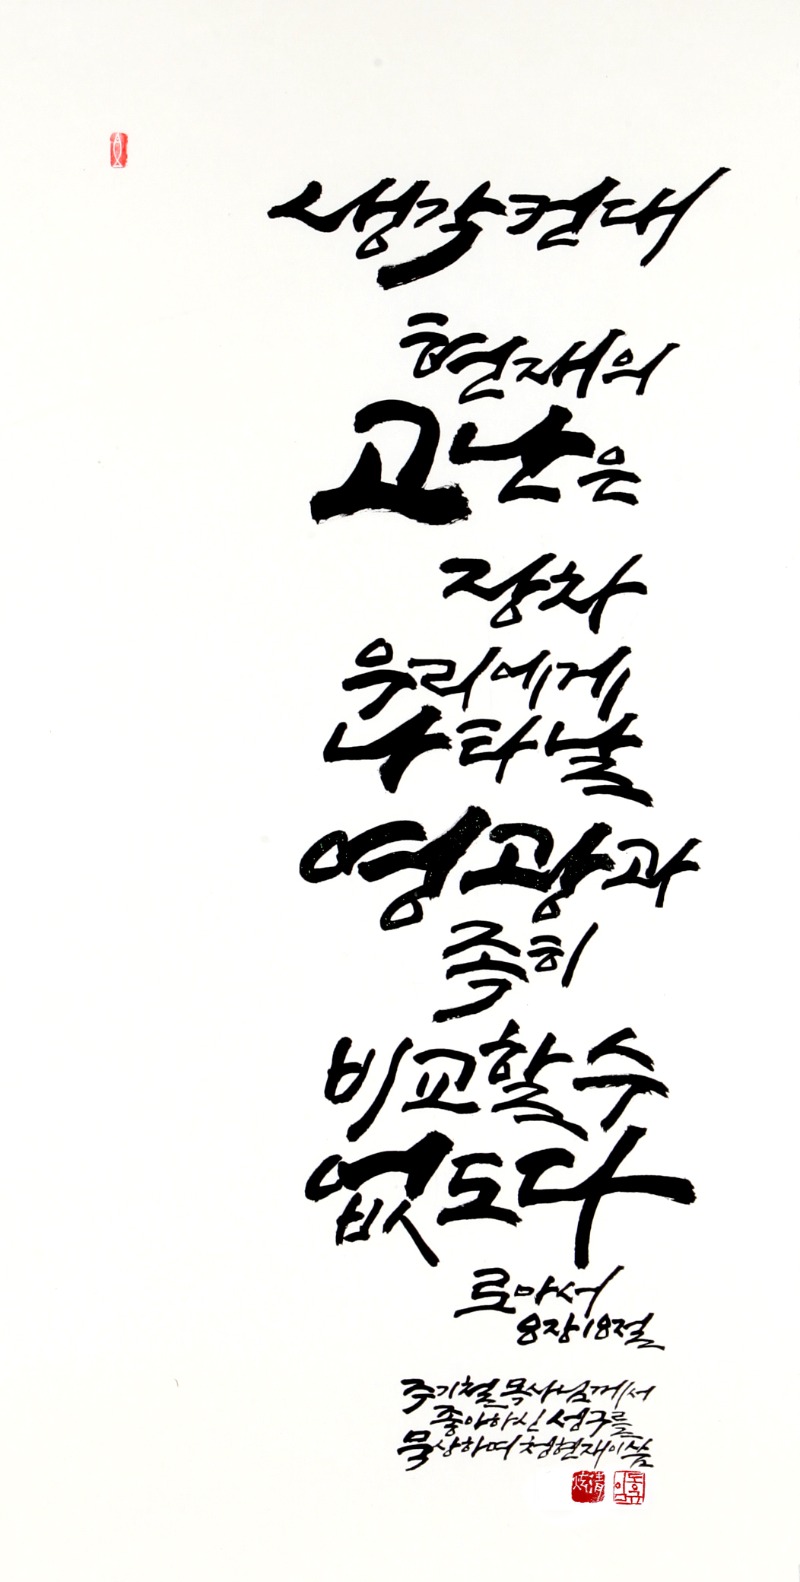 생각컨대
현재의
고난은
장차
우리에게
나타날
영광과
족히
비교할 수
없도다
로마서
8장 18절
주기철 목사님께서
좋아하신 성구를
묵상하며 청현재이 씀